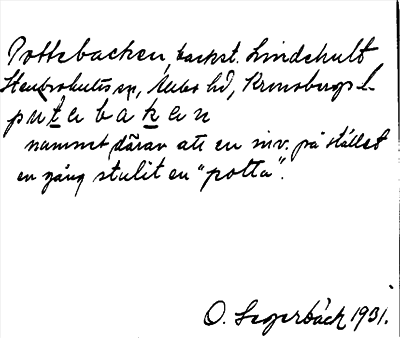 Pottebacken, backst. Lindehult
Stenbrohults sn, Allbo hd, Kronobergs l.
pùtabakan
namnet därav att en inv. på stället
en gång stulit en "potta".
O. Segerbäck 1931.